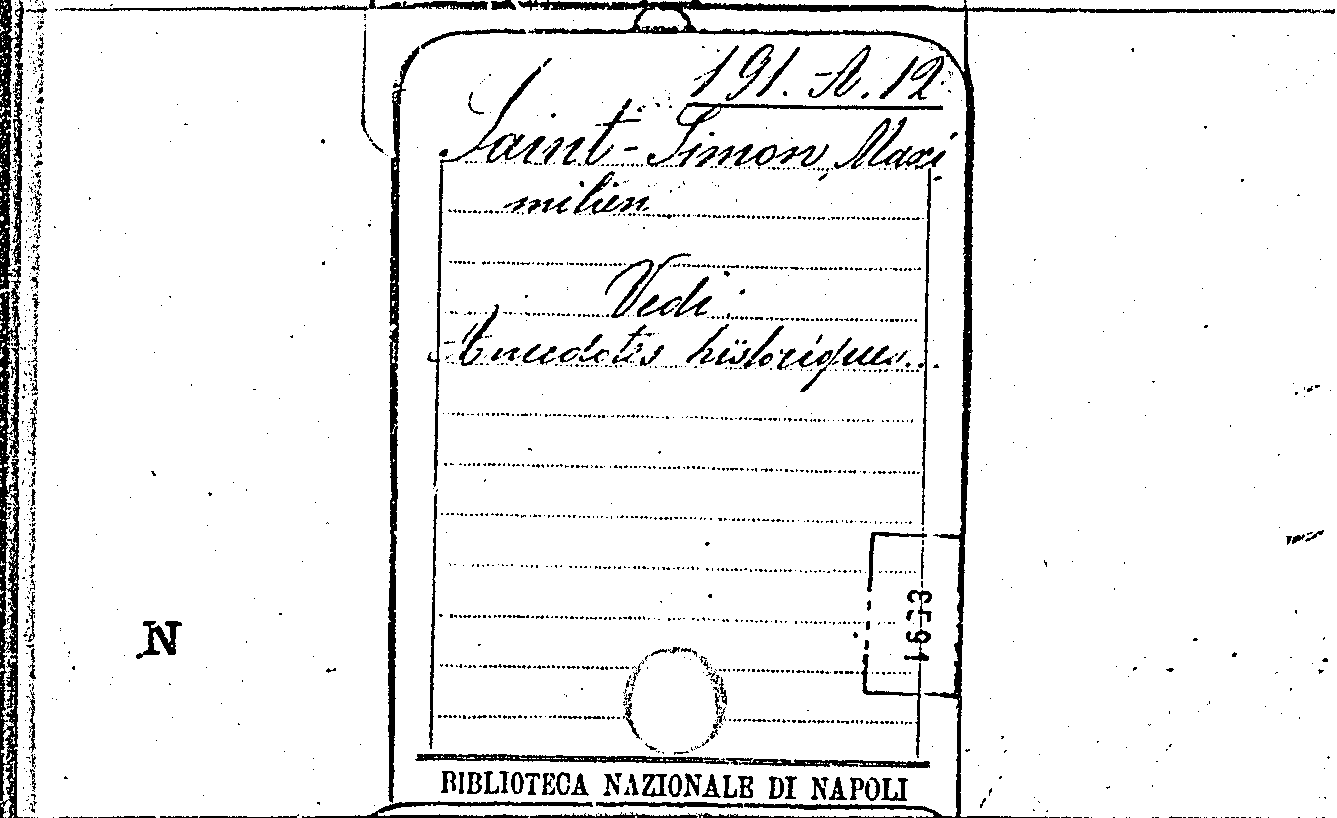 191. A. 12
Saint-Simon, Maxi
milien
Vedi:
Anecdotes historiques...
N
BIBLIOTECA NAZIONALE DI NAPOLI